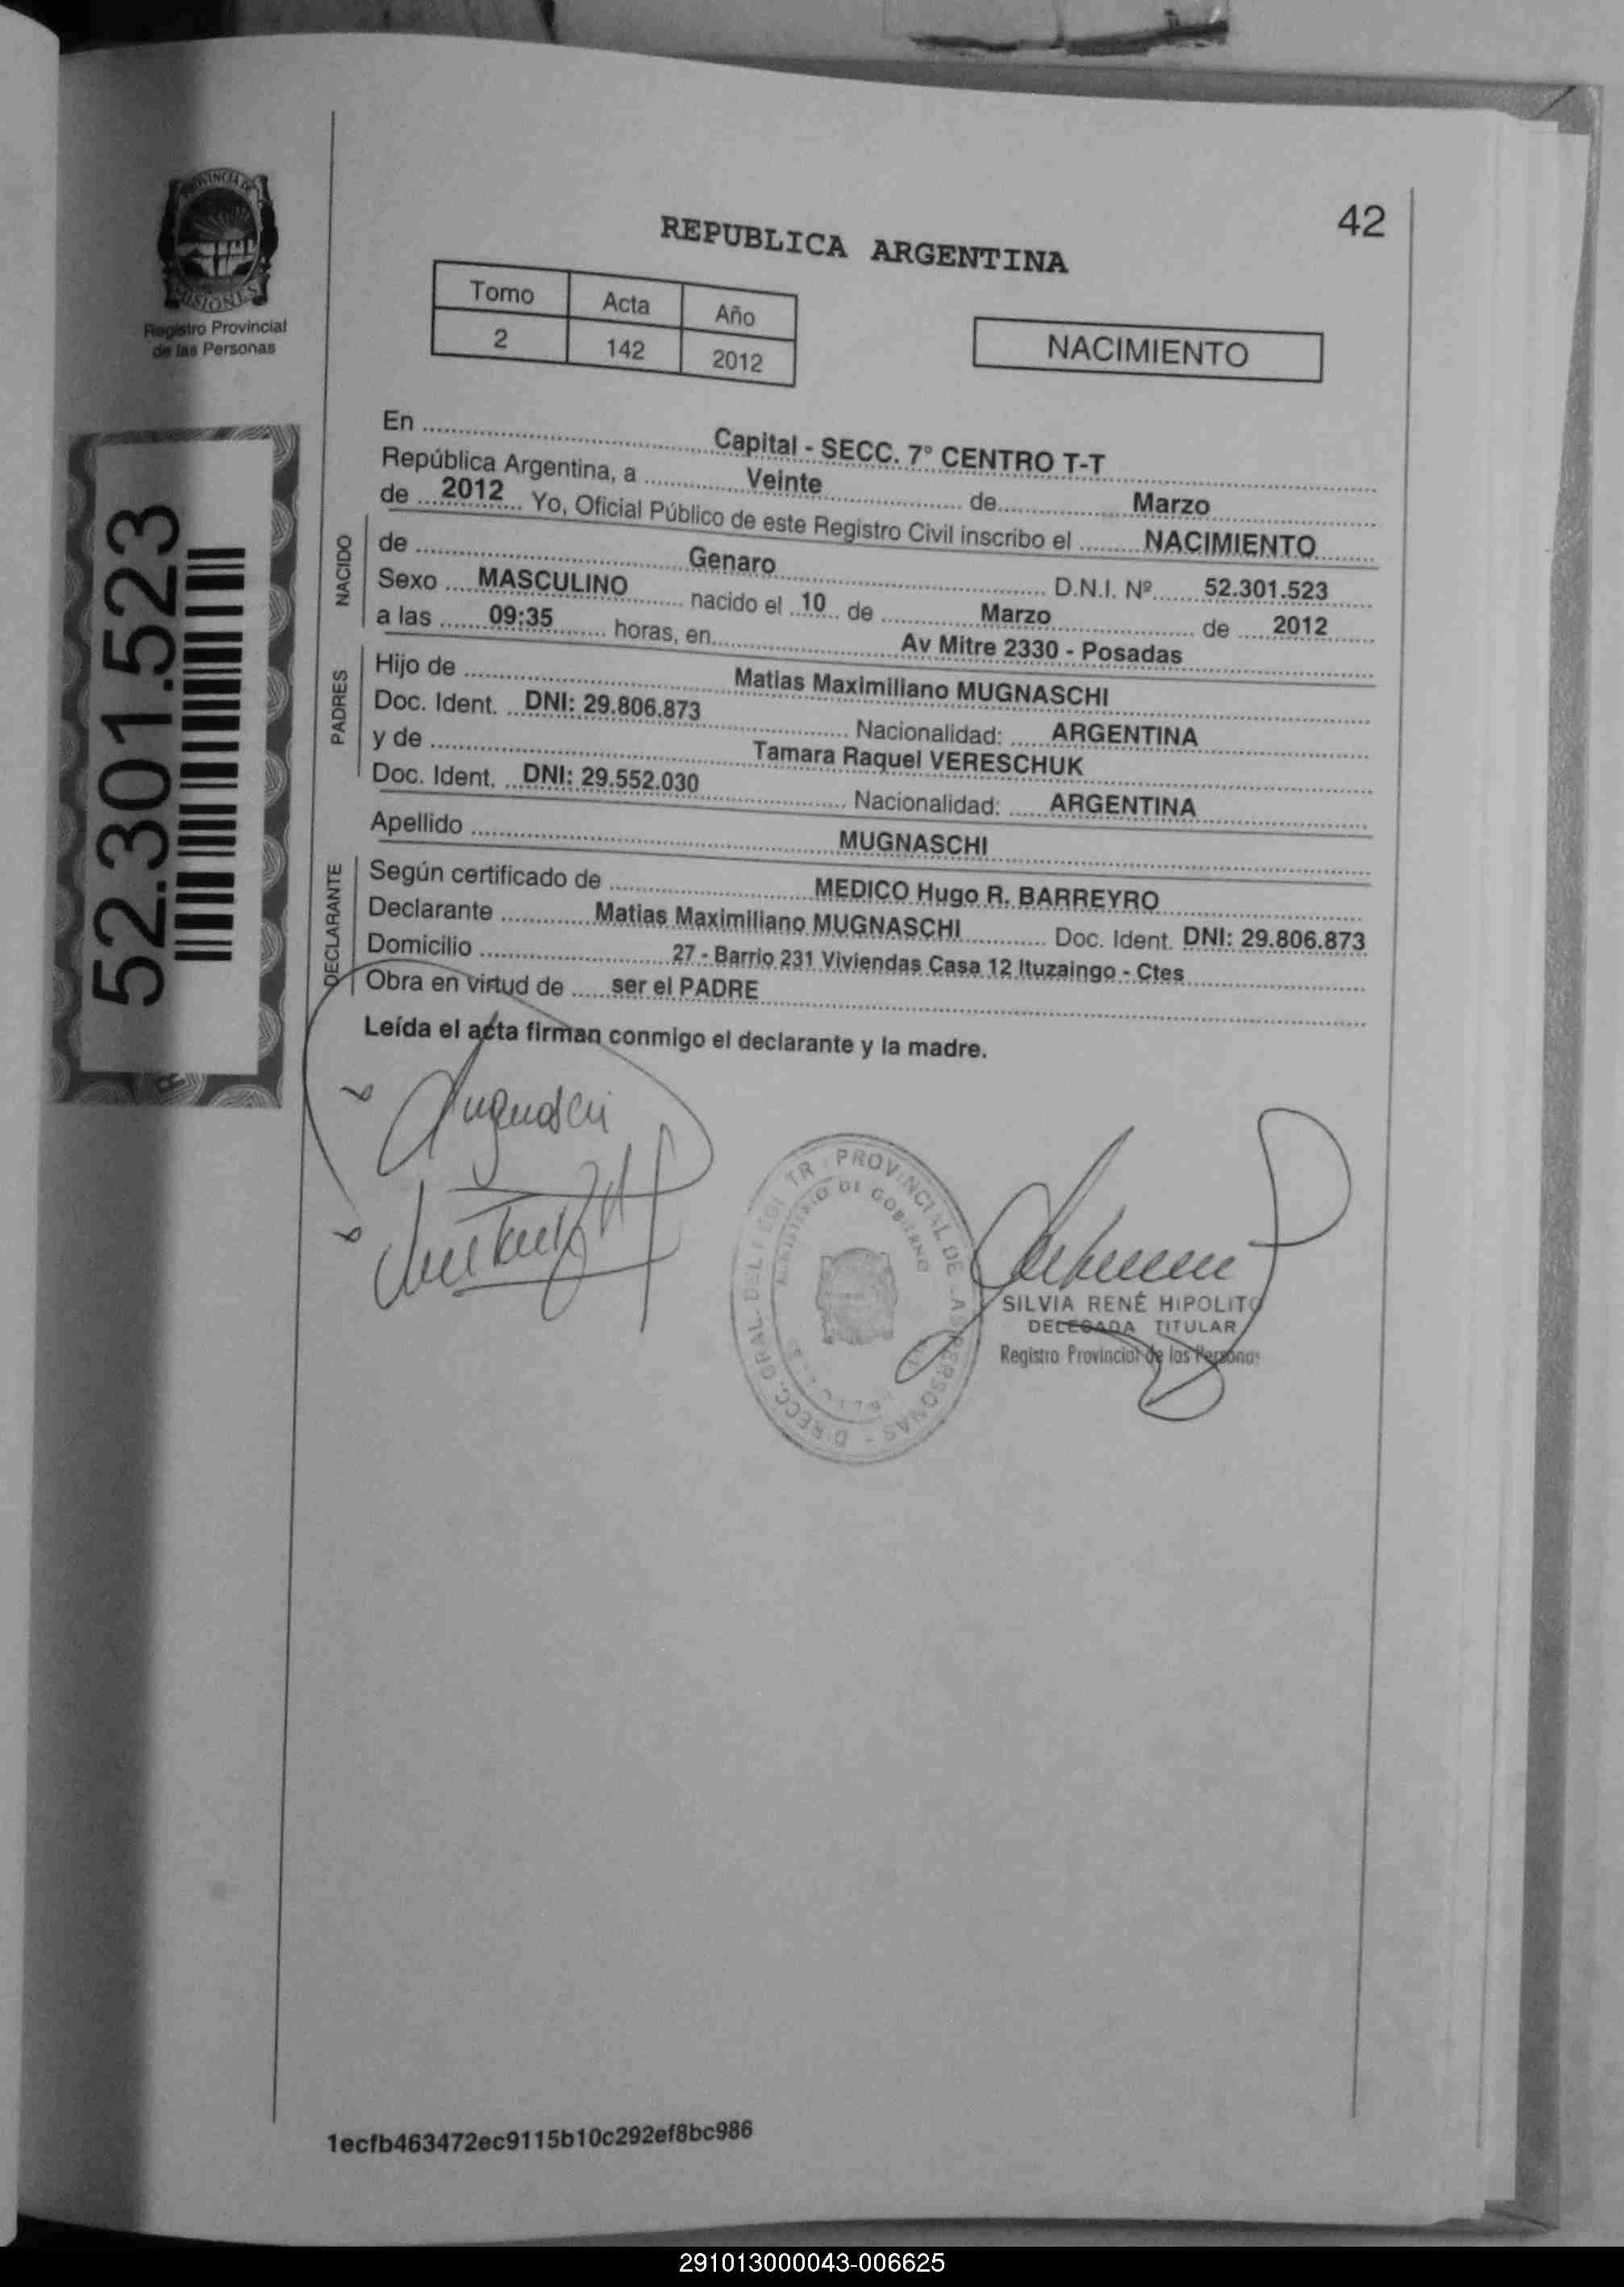 PROVINCIA DE
MISIONES
Registro Provincial
de las Personas
52.301.523
42
REPUBLICA ARGENTINA
Tomo Acta Año
2 142 2012
NACIMIENTO
En Capital - SECC. 7° CENTRO T-T
República Argentina, a Veinte de Marzo
de 2012 Yo, Oficial Público de este Registro Civil inscribo el NACIMIENTO
NACIDO
de Genaro D.N.I. Nº 52.301.523
Sexo MASCULINO nacido el 10 de Marzo de 2012
a las 09:35 horas, en Av Mitre 2330 - Posadas
PADRES
Hijo de Matias Maximiliano MUGNASCHI
Doc. Ident. DNI: 29.806.873 Nacionalidad: ARGENTINA
y de Tamara Raquel VERESCHUK
Doc. Ident. DNI: 29.552.030 Nacionalidad: ARGENTINA
Apellido MUGNASCHI
DECLARANTE
Según certificado de MEDICO Hugo R. BARREYRO
Declarante Matias Maximiliano MUGNASCHI Doc. Ident. DNI: 29.806.873
Domicilio 27 - Barrio 231 Viviendas Casa 12 Ituzaingo - Ctes
Obra en virtud de ser el PADRE
Leída el acta firman conmigo el declarante y la madre.
PROVINCIAL DE LAS PERSONAS - DIRECC. GRAL. DEL
MINISTERIO DE GOBIERNO
SILVIA RENÉ HIPOLITO
DELEGADA TITULAR
Registro Provincial de las Personas
1ecfb463472ec9115b10c292ef8bc986
291013000043-006625